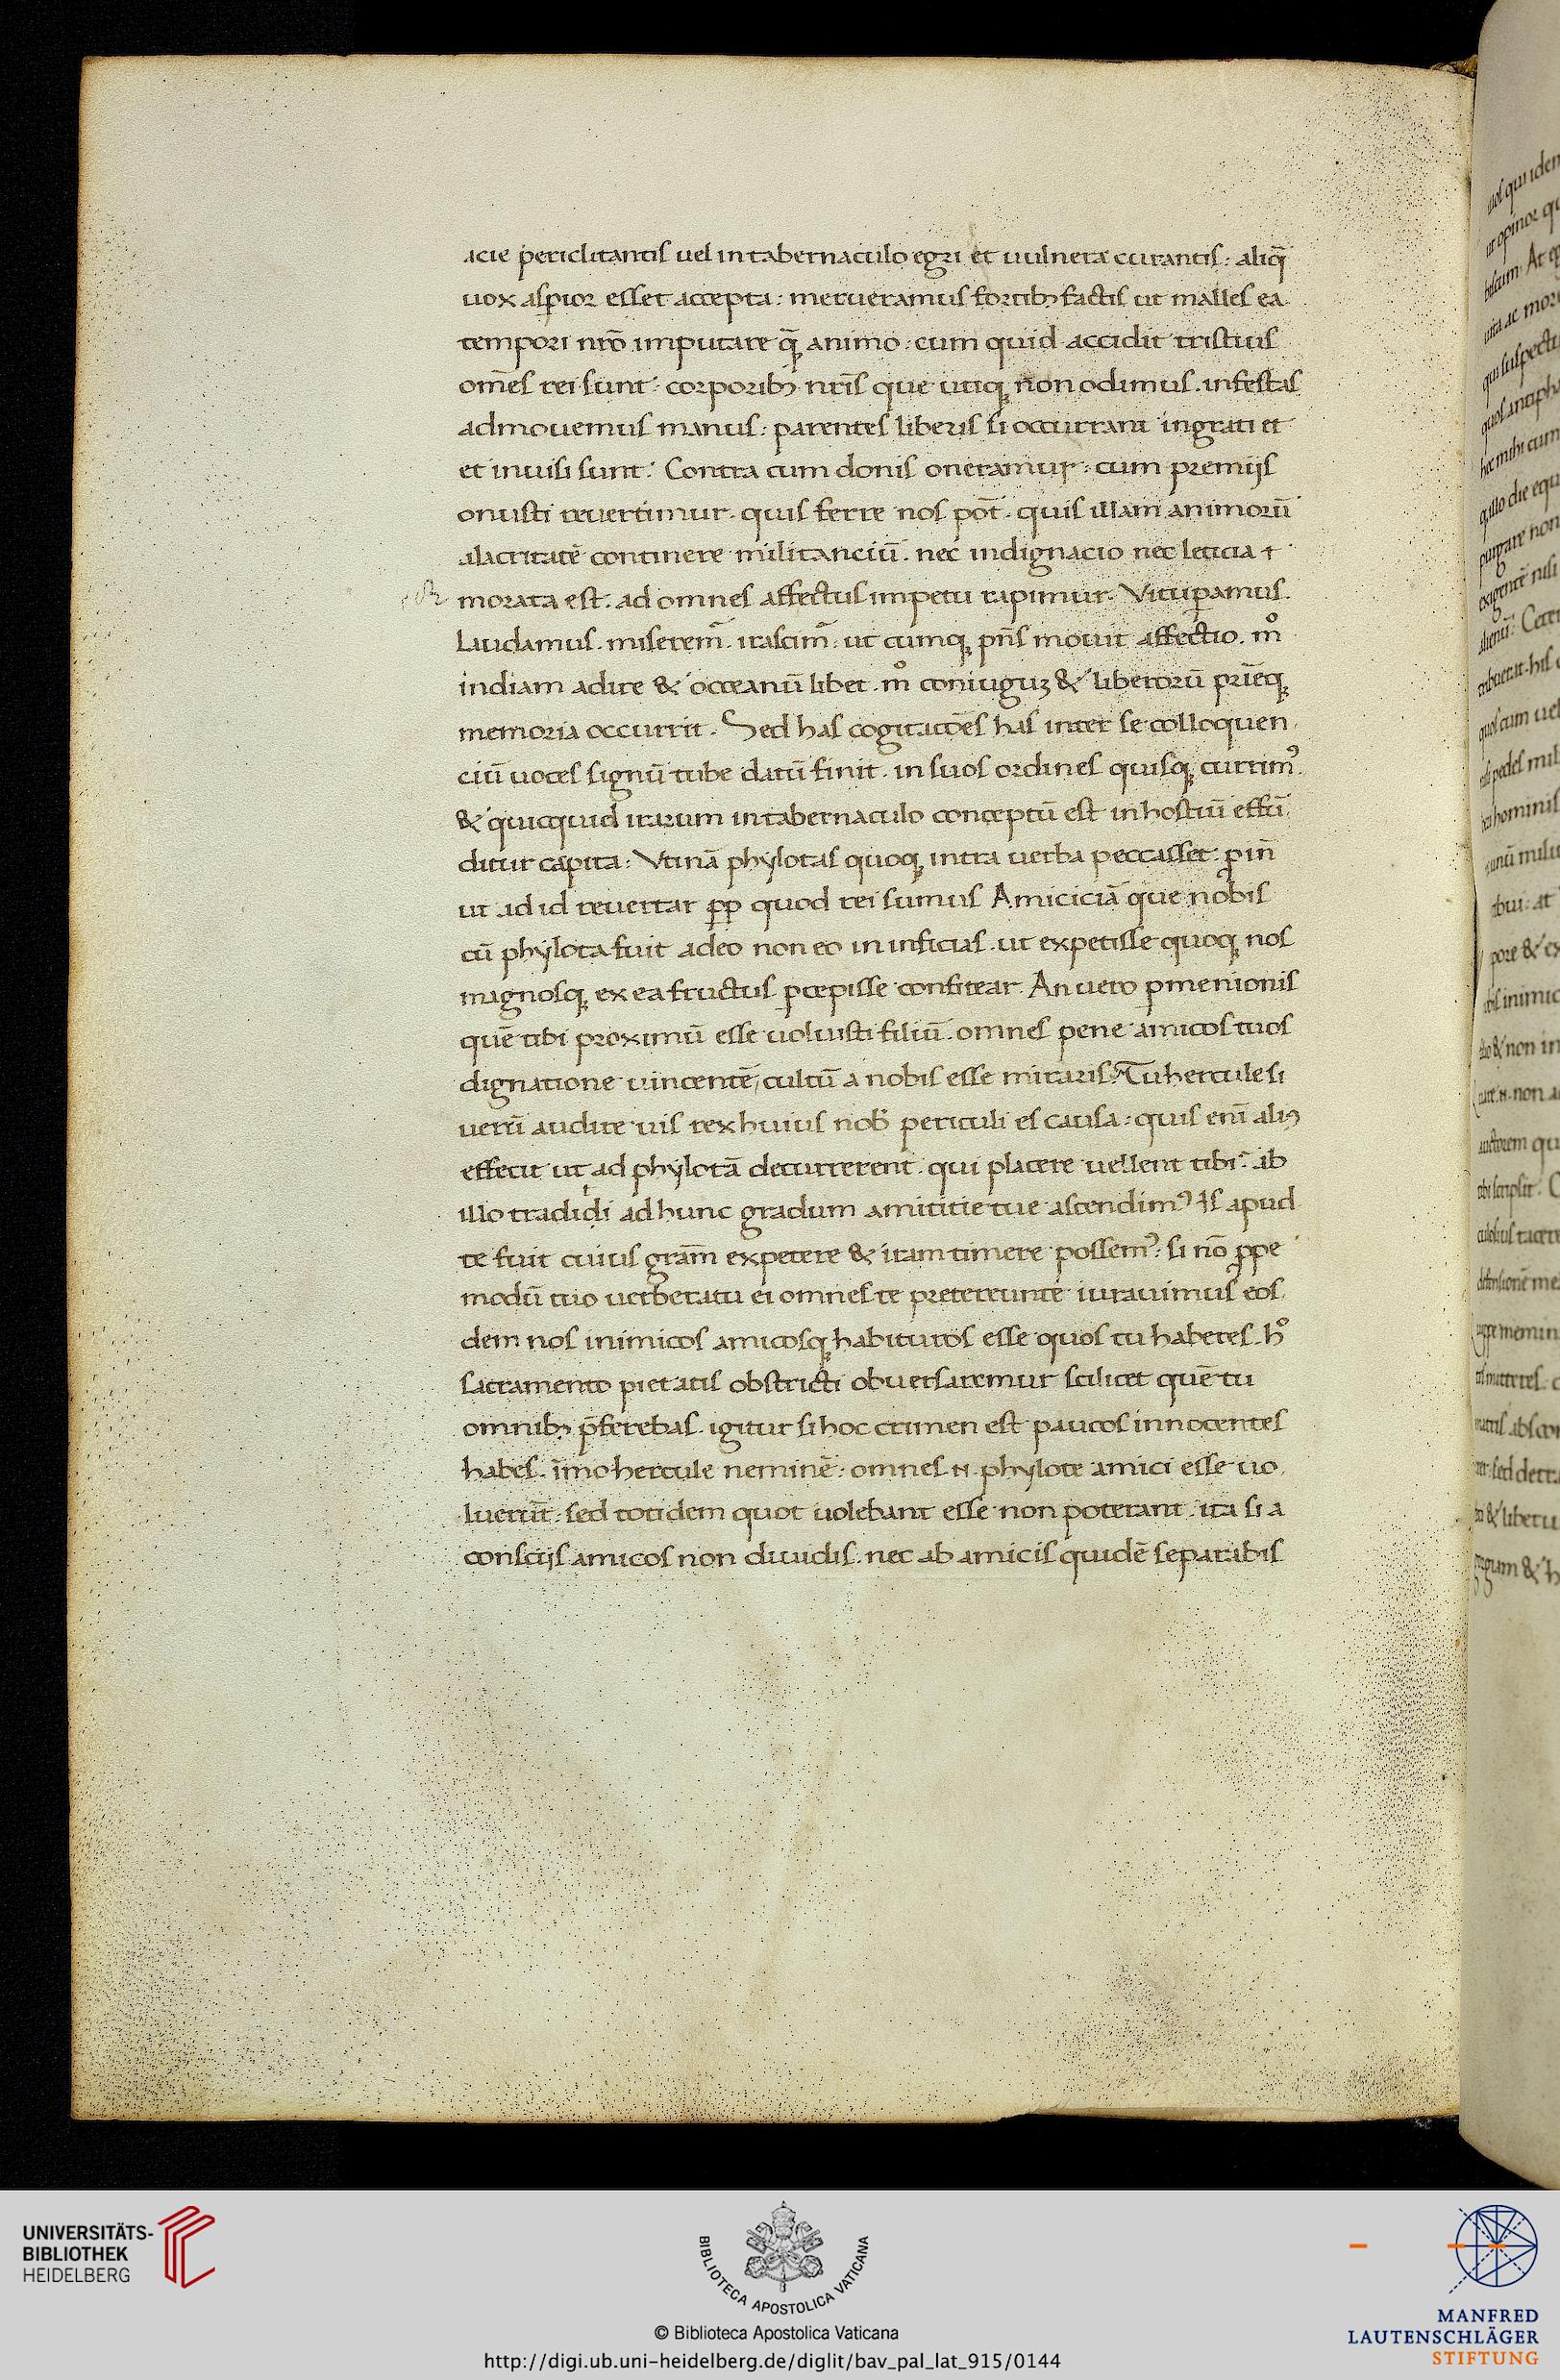 acie periclitantis uel in tabernaculo egri et uulnera curantis: aliq̄
uox asp̱ior esset accepta: merueramus fortib; factis ut malles ea
tempori nr̄o imputare q̄ȝ animo. cum quid accidit tristius
om̄es rei sunt: corporib; nr̄is que utiqȝ non odimus. infestas
admouemus manus: parentes liberis si occurrant ingrati et
et inuisi sunt: Contra cum donis oneramur: cum premijs
onusti reuertimur. quis ferre nos pōt. quis illam animorū
alacritatē continere militanciū. nec indignacio nec leticia
morata est. ad omnes affectus impetu rapimur. Vitup̱amus.
Laudamus. miserem᷑. irascim᷑. ut cumqȝ pn̄s mouit affectio. mͦ
indiam adire & occeanū libet. mͦ coniuguȝ & liberorū pr̄ieqȝ
memoria occurrit. Sed has cogitatōes has inter se colloquen
ciū uoces signū tube datū finit. in suos ordines quisqȝ currimꝰ.
& quicquid irarum in tabernaculo conceptū est in hostiū effū
ditur capita: Vtinā phylotas quoqȝ intra uerba peccasset. ꝓin̄
ut ad id reuertar ꝓp̱ quod rei sumus Amiciciā que nobis
cū phylota fuit adeo non eo in inficias. ut expetisse quoqȝ nos
magnosqȝ ex ea fructus p̱cepisse confitear. An uero p̱menionis
quē tibi proximū esse uoluisti filiū. omnes pene amicos tuos
dignatione uincentē cultū a nobis esse miraris. Tu hercule si
uerū audire uis rex huius nob̄ periculi es causa: quis enī aliꝰ
effecit ut ad phylotā decurrerent. qui placere uellent tibi. ab
illo tradidi ad hunc gradum amititie tue ascendimꝰ Is apud
te fuit cuius gram̄ expetere & iram timere possemꝰ: si nō ꝓpe
modū tuo uerberatu ei omnes te pretereunte iurauimus eos
dem nos inimicos amicosqȝ habituros esse quos tu haberes. hͦ
sacramento pietatis obstricti obuersaremur scilicet quē tu
omnib; p̄ferebas. igitur si hoc crimen est paucos innocentes
habes. īmo hercule neminē: omnes .N. phylote amici esse uo
luerūt: sed totidem quot uolebant esse non poterant. ita si a
conscijs amicos non diuidis. nec ab amicis quidē separabis
UNIVERSITÄTS-
BIBLIOTHEK
HEIDELBERG
BIBLIOTECA APOSTOLICA VATICANA
© Biblioteca Apostolica Vaticana
http://digi.ub.uni-heidelberg.de/diglit/bav_pal_lat_915/0144
MANFRED
LAUTENSCHLÄGER
STIFTUNG